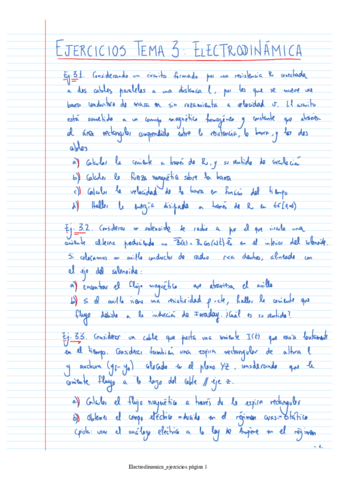 EJERCICIOS TEMA 3: ELECTRODINÁMICA
Ej 3.1. Considerando un circuito formado por una resistencia R conectada
a dos cables paralelos a una distancia l, por los que se mueve una
barra conductora de masa m sin rozamiento a velocidad v. El circuito
está sometido a un campo magnético homogéneo y constante que atraviesa
el área rectangular comprendida entre la resistencia, la barra y los dos
cables
a) Calcular la corriente a través de R, y su sentido de circulación
b) Calcular la fuerza magnética sobre la barra
c) Calcular la velocidad de la barra en función del tiempo
d) Hallar la energía disipada a través de R en
Ej. 3.2. Considerar un solenoide de radio a por el que circula una
corriente alterna produciendo un en el interior del solenoide.
Si colocamos un anillo conductor de radio dentro, alineado con
el eje del solenoide:
a) encontrar el flujo magnético que atraviesa el anillo
b) si el anillo tiene una resistividad hallar la corriente que
fluye debido a la inducción de Faraday. ¿Cuál es su sentido?
Ej. 3.3. Considerar un cable que porta una corriente I(t) que varía lentamente
en el tiempo. Considerar también una espira rectangular de altura l
y anchura colocada en el plano YZ, considerando que la
corriente fluye a lo largo del cable // eje z.
a) Calcular el flujo magnético a través de la espira rectangular
b) Obtener el campo eléctrico inducido en el régimen cuasi-estático
(pista: usar el análogo eléctrico a la ley de Ampère en el régimen
Electrodinamica_ejercicios página 1